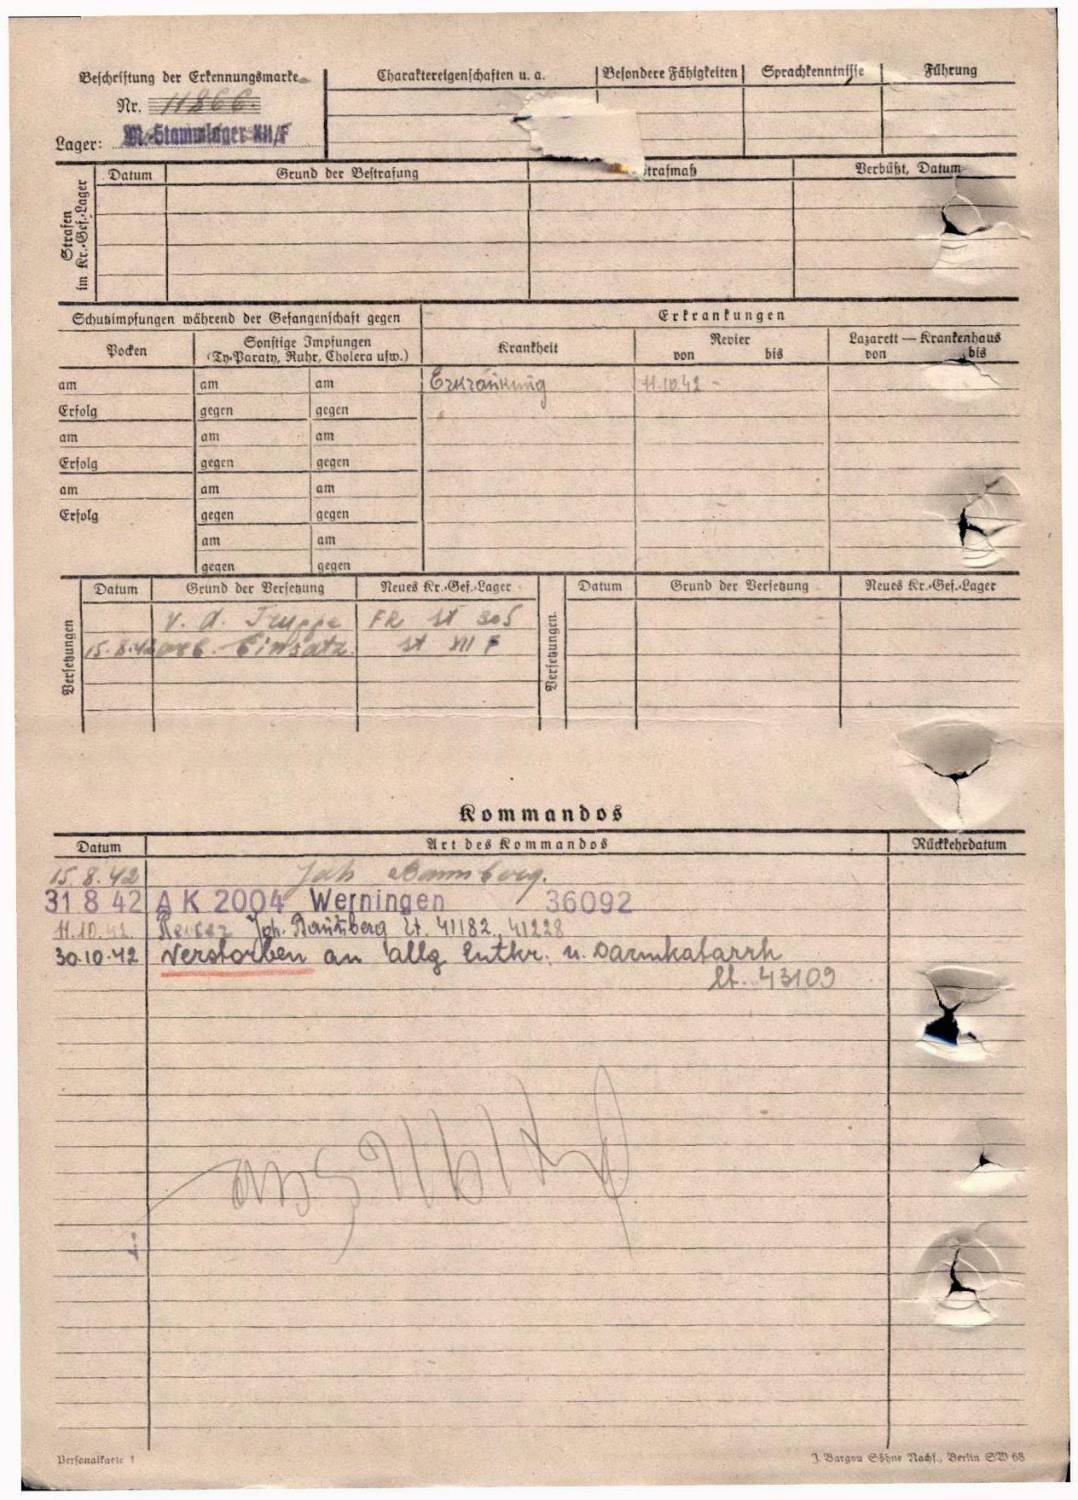 Beschriftung der Erkennungsmarke
Nr. 11866
Lager: M.-Stammlager XII/F
Charaktereigenschaften u. a. Besondere Fähigkeiten Sprachkenntnisse Führung
Strafen im Kr.-Gef.-Lager
Datum Grund der Bestrafung trafmaß Verbüßt, Datum
Schutzimpfungen während der Gefangenschaft gegen
Erkrankungen
Pocken Sonstige Impfungen Krankheit Revier Lazarett — Krankenhaus
(Ty-Paraty, Ruhr, Cholera usw.) von bis von bis
am am am Erkrankung 11.10.42 -
Erfolg gegen gegen
am am am
Erfolg gegen gegen
am am am
Erfolg gegen gegen
am am
gegen gegen
Versetzungen
Datum Grund der Versetzung Neues Kr.-Gef.-Lager
v. d. Truppe FR St 305
15.8.42 Einsatz. St XII F
Versetzungen.
Datum Grund der Versetzung Neues Kr.-Gef.-Lager
Kommandos
Datum Art des Kommandos Rückkehrdatum
15.8.42 Joh Bannberg.
31 8 42 A K 2004 Werningen 36092
11.10.42. Revier Joh. Lt. 41182, 41228
30.10.42 verstorben an allg Entkr. u. Darmkatarrh
lt. 43109
Personalkarte 1
J. Bargou Söhne Nachf., Berlin SW 68